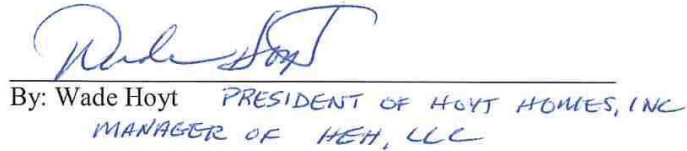 Wade Hoyt
By: Wade Hoyt PRESIDENT OF HOYT HOMES, INC
MANAGER OF HEH, LLC